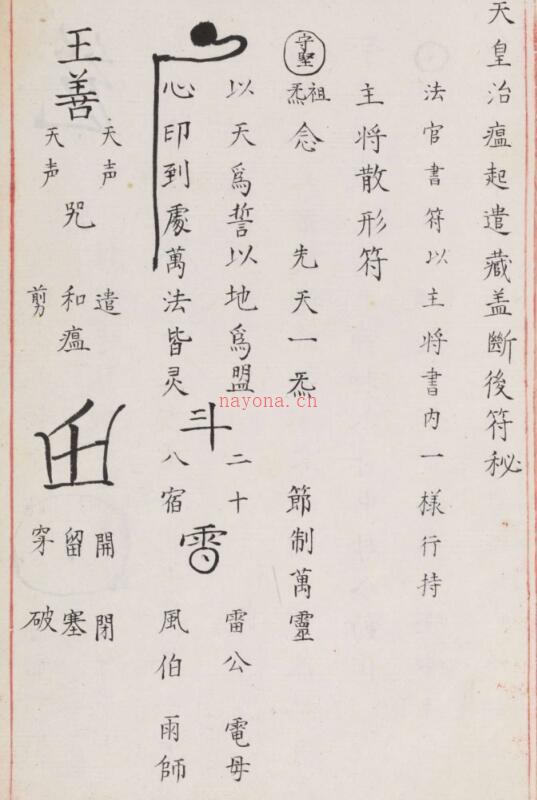 天皇治瘟起遣藏盖斷後符秘
法官書符以主將書內一樣行持
主將散形符
守堅
祖炁念 先天一炁 節制萬靈
以天爲誓以地爲盟 二十 雷公 電母
心印到處萬法皆灵 斗 八宿 雷 風伯 雨師
天声 遣 開 閉
王善 咒 和瘟 留 塞
天声 剪 穿 破
nayona.ch